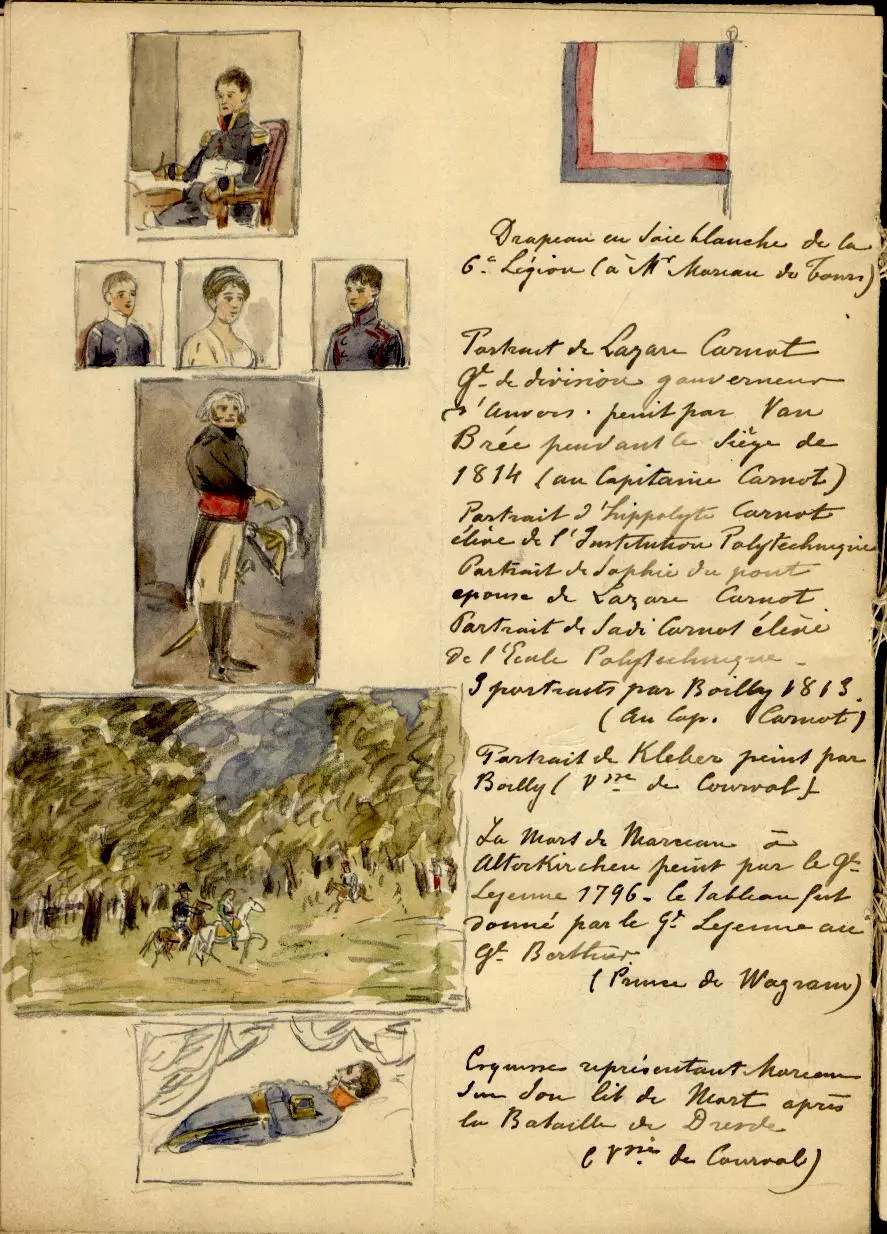 Drapeau en soie blanche de la
6e Légion (à Mr Moreau de Tours)
Portrait de Lazare Carnot
Gl de division gouverneur
d'Anvers. peint par Van
Brée pendant le Siège de
1814 (au Capitaine Carnot)
Portrait d'Hippolyte Carnot
élève de l'Institution Polytechnique
Portrait de Sophie du pont
epouse de Lazare Carnot
Portrait de Sadi Carnot élève
de l'Ecole Polytechnique -
3 portraits par Boilly 1813.
(au Cap. Carnot)
Portrait de Kleber peint par
Boilly (Vsse de Courval)
La Mort de Marceau à
Altorkirchen peint par le Gl
Lejeune 1796 - le tableau fut
donné par le Gl Lejeune au
Gl Berthier.
(Prince de Wagram)
Esquisse représentant Moreau
sur son lit de Mort après
la Bataille de Dresde
(Vsse de Courval)